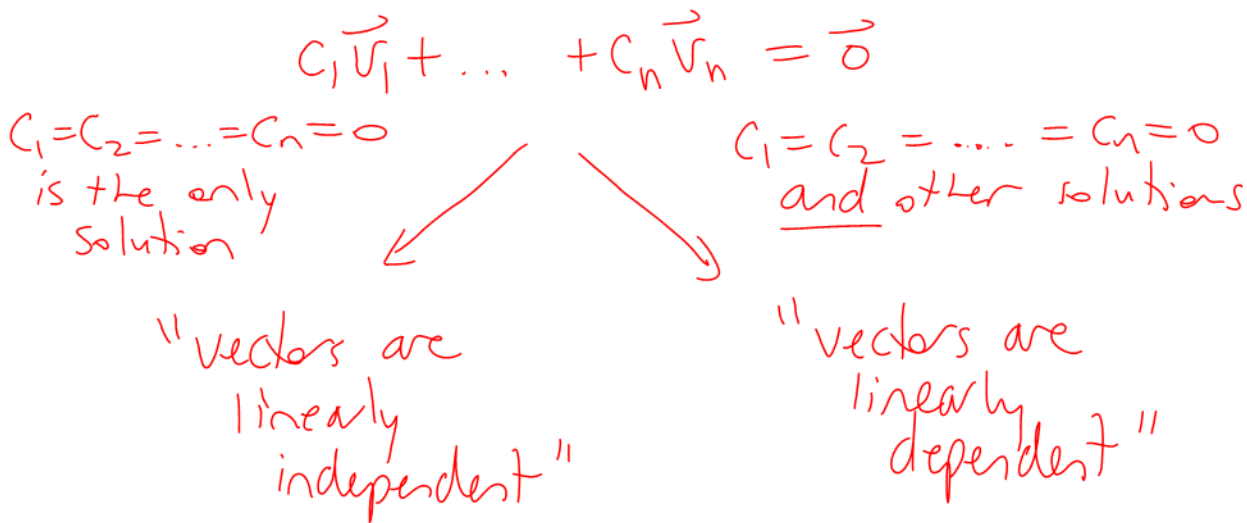 C₁v⃗₁ + ... + Cₙv⃗ₙ = 0⃗
C₁ = C₂ = ... = Cₙ = 0
is the only
solution
C₁ = C₂ = ..... = Cₙ = 0
and other solutions
"vectors are
linearly
independent"
"vectors are
linearly
dependent"